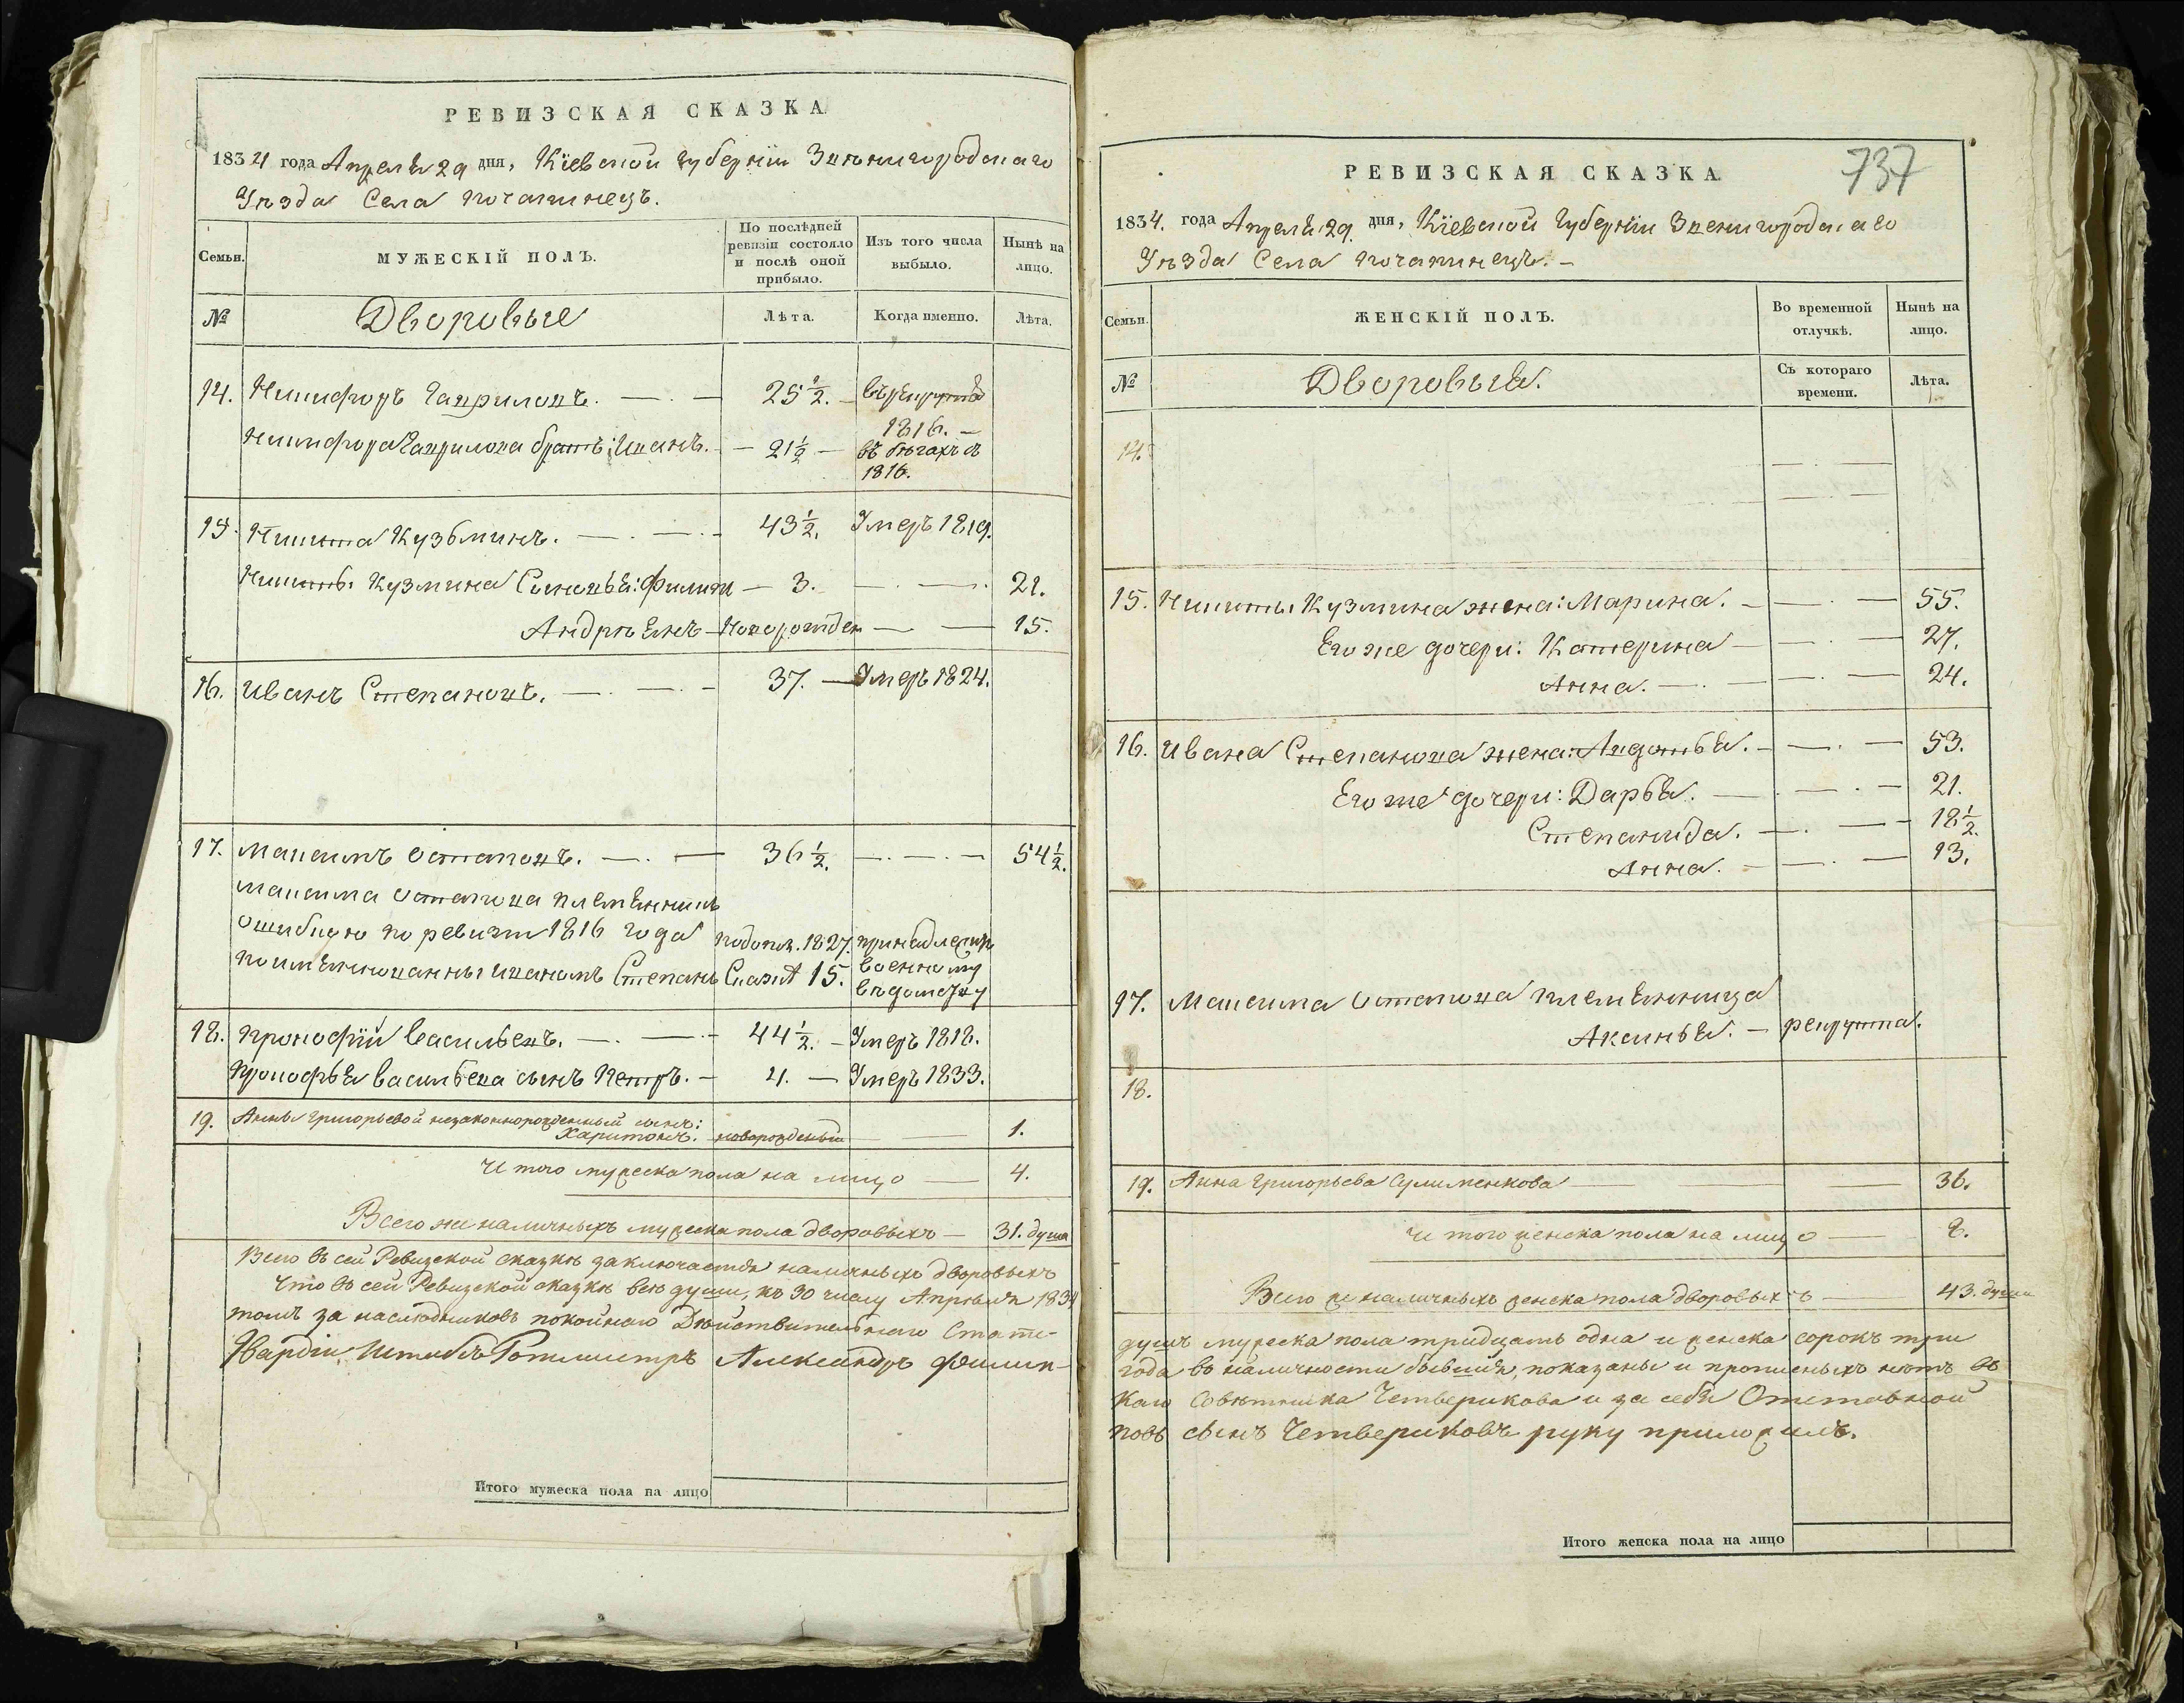 РЕВИЗСКАЯ СКАЗКА
1834 года Апреля 29 дня, Кіевской губерніи Звенигородскаго
Уѣзда Села Почапинецъ.
Семьи.
МУЖЕСКІЙ ПОЛЪ.
По послѣдней
ревизіи состояло
и послѣ оной
прибыло.
Изъ того числа
выбыло.
Нынѣ на
лицо.
№
Дворовые
Лѣта.
Когда именно.
Лѣта.
14. Никифоръ Гавриловъ. 25 1/2. въ рекруты
1816.
Никифора Гаврилова братъ: Иванъ. 21 1/2 въ бѣгахъ съ
1816.
15. Никита Кузьминъ. 43 1/2. Умеръ 1819.
Никиты Кузмина Сыновья: Филипъ 3. 21.
Андреянъ Новорожден 15.
16. Иванъ Степановъ. 37. Умеръ 1824.
17. Максимъ Остаповъ. 36 1/2. 54 1/2.
Максима Остапова племянникъ
ошибкою по ревизіи 1816 года
поимянованны Иваномъ Степанъ
подопол. 1827.
Сказкѣ 15.
принадлежитъ
военному
вѣдомству
18. Прокофій Васильевъ. 44 1/2. Умеръ 1818.
Прокофья Васильева сынъ Петръ. 4. Умеръ 1833.
19. Анны Григорьевой незаконнорожденный сынъ:
Харитонъ. новорожденый 1.
Итого мужеска пола на лицо 4.
Всего же наличныхъ мужеска пола дворовыхъ 31. душа
Всего въ сей Ревизской сказкѣ заключается наличныхъ дворовыхъ
Что въ сей Ревизской сказкѣ всѣ души, къ 30 числу Апрѣля 1834
томъ за наслѣдниковъ покойнаго Дѣйствительнаго Статс-
Гвардіи Штабсъ Ротмистръ Александръ Филип-
Итого мужеска пола на лицо
737
РЕВИЗСКАЯ СКАЗКА
1834. года Апреля 29. дня, Кіевской Губерніи Звенигородскаго
Уѣзда Села Почапинецъ.
Семьи.
ЖЕНСКІЙ ПОЛЪ.
Во временной
отлучкѣ.
Нынѣ на
лицо.
№
Дворовыя.
Съ котораго
времени.
Лѣта.
14.
15. Никиты Кузмина жена: Марина. 55.
Его же дочери: Катерина 27.
Анна. 24.
16. Ивана Степанова жена: Авдотья. 53.
Его же дочери: Дарья. 21.
Степанида. 18 1/2.
Анна. 13.
17. Максима Остапова племянница
Аксинья. рекрутка.
18.
19. Анна Григорьева Сулименкова 36.
Итого женска пола на лицо 8.
Всего же наличныхъ женска пола дворовыхъ 43. души
душъ мужеска пола тридцать одна и женска сорокъ три
года въ наличности бывшія, показаны и прописныхъ нѣтъ въ
каго Совѣтника Четверикова и за себя Отставной
повъ сынъ Четвериковъ руку приложилъ.
Итого женска пола на лицо